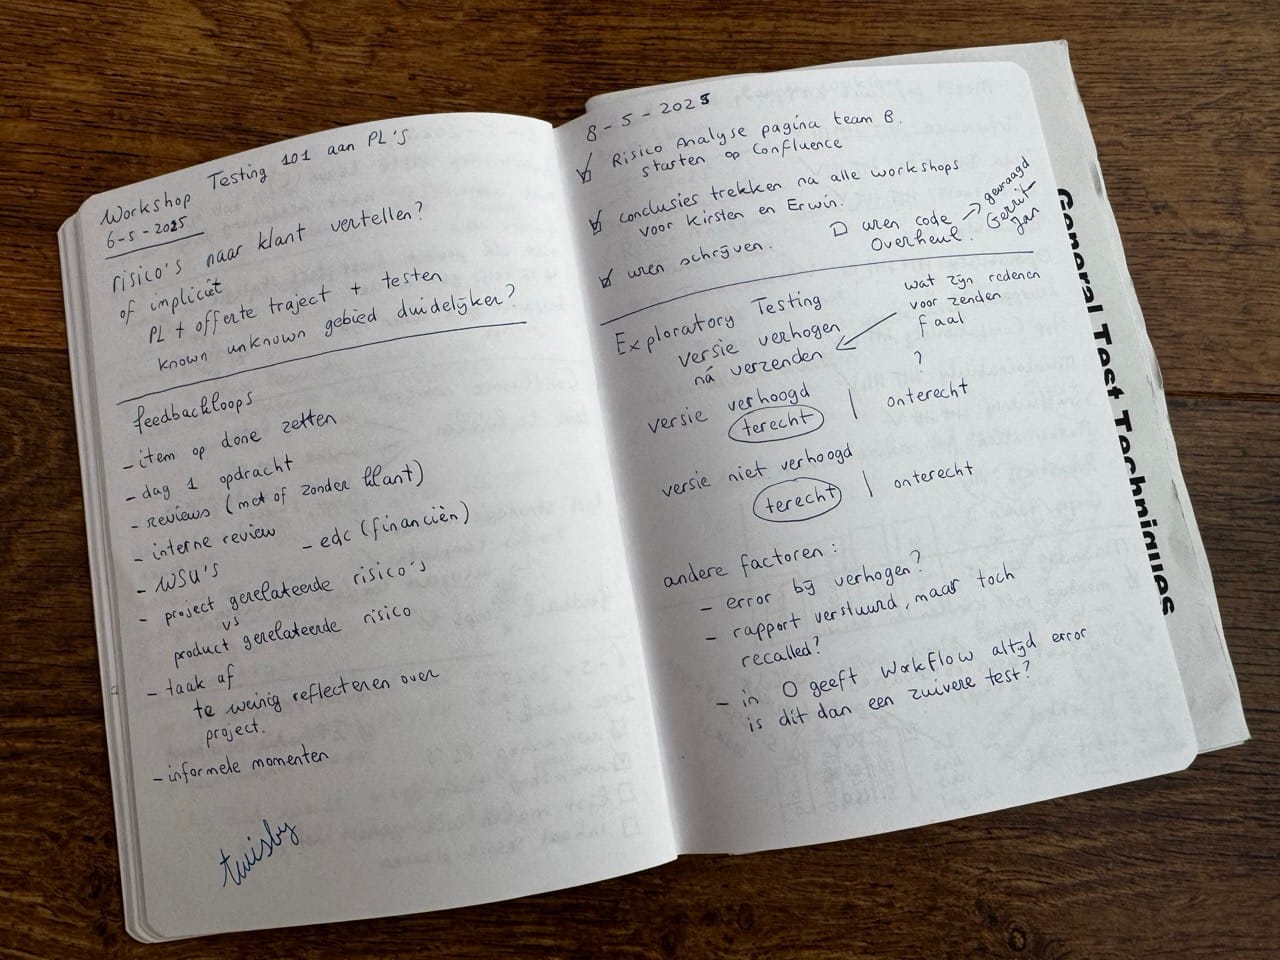 Workshop Testing 101 aan PL's
6-5-2025
risico's naar klant vertellen?
of impliciet
PL + offerte traject + testen
known unknown gebied duidelijker?
feedbackloops
- item op done zetten
- dag 1 opdracht
- reviews (met of zonder klant)
- interne review
- edc (financiën)
- WSU's
- project gerelateerde risico's
vs
product gerelateerde risico
- taak af
te weinig reflecteren over
project.
- informele momenten
twisby
8-5-2025
Risico Analyse pagina team B.
starten op Confluence
conclusies trekken na alle workshops
voor Kirsten en Erwin.
uren schrijven.
uren code → gevraagd
Overheul. Gerrit-
Jan
Exploratory Testing
versie verhogen
ná verzenden
wat zijn redenen
voor zenden
faal
?
versie verhoogd
terecht | onterecht
versie niet verhoogd
terecht | onterecht
andere factoren:
- error bij verhogen?
- rapport verstuurd, maar toch
recalled?
- in O geeft Workflow altijd error
is dit dan een zuivere test?
General Test Techniques